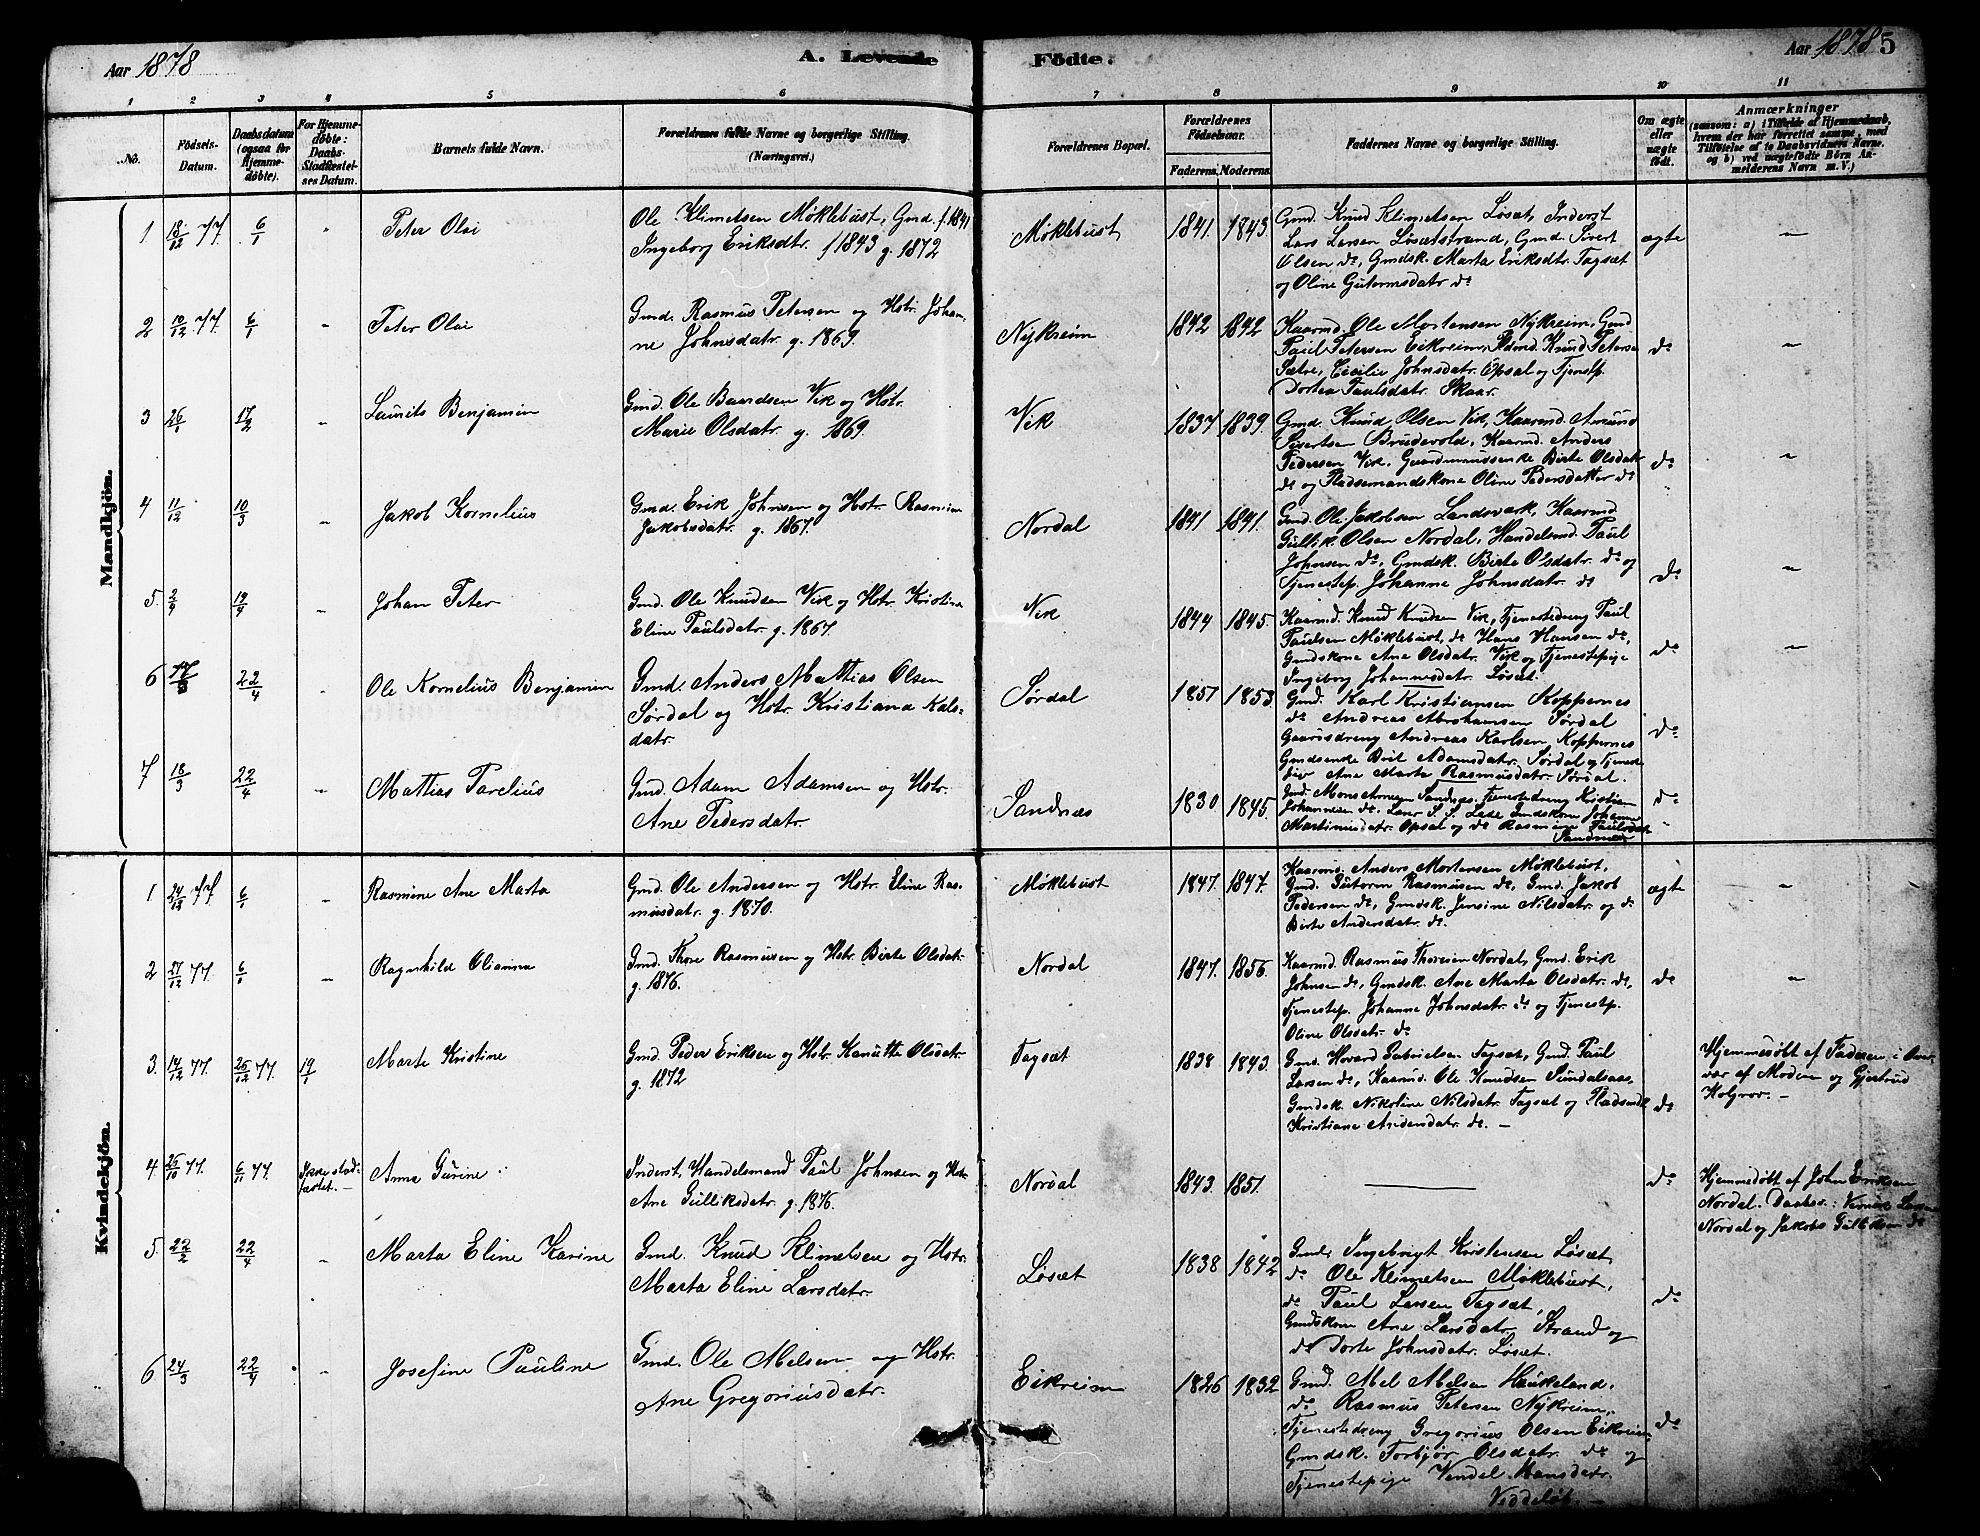 Aar 1878
A. Levende
Födte.
Aar 1878
5
1 2 3 4 5 6 7 8 9 10 11
No.
Födsels-
Datum.
Daabsdatum
(ogsaa for
Hjemme-
döbte).
For Hjemme-
döbte:
Daabs-
Stadfæstel-
ses Datum.
Barnets fulde Navn.
Forældrenes fulde Navne og borgerlige Stilling.
(Næringsvei.)
Forældrenes Bopæl.
Forældrenes
Födselsaar.
Faderens. Moderens.
Faddernes Navne og borgerlige Stilling.
Om ægte
eller
uægte
födt.
Anmærkninger
(saasom: a) i Tilfælde af Hjemmedaab,
hvem der har forrettet samme, med
Tilföielse af to Daabsvidners Navne.
og b) ved uægtefödte Börn An-
melderens Navn m. V.)
Mandkjön.
1 18/12 77 6/1 " Peter Olai
Ole Klimetsen Møklebust, Gmd. f 1841
Ingeborg Eriksdtr. f 1843 g. 1872
Møklebust 1841 1843
Gmd. Knud Klimetsen Løset, Inderst
Lars Larsen Løsætstrand, Gmd. Sivert
Olsen do, Gmdsk. Marta Eriksdtr. Tagsæt
og Oline Gutormsdatr do
ægte
2 10/12 77. 6/1 " Peter Olai
Gmd. Rasmus Petersen og Hstr. Johan-
ne Johnsdatr. g. 1869.
Nykreim 1842 1842
Kaarmd. Ole Mortensen Nykreim, Gmd
Paul Petersen Eikreim, Knud Peterse
Sætre, Cecilie Johnsdatr. Opsal og Tjenstp.
Dortea Paulsdatr. Skaar.
do
3 26/1 17/2 Laurits Benjamin
Gmd. Ole Baardsen Vik og Hstr.
Marie Olsdatr. g. 1869.
Vik 1837 1839
Gmd. Knud Olsen Vik, Kaarmd. Amund
Sivertsen Brudevold, Kaarmd. Anders
Pedersen Vik, Gaardmandsenke Birte Olsdatr
do og Pladsemandskone Oline Pedersdatter do
do
4 11/12 10/3 Jakob Kornelius
Gmd. Erik Johnsen og Hstr. Rasmine
Jakobsdatr. g. 1867.
Nordal 1841 1841.
Gmd. Ole Jakobsen Landsvark, Kaarmd
Gullik Olsen Nordal, Handelsmd. Paul
Johnsen do, Gmdsk. Birte Olsdatr. do og
Tjenestep. Johanne Johnsdatr. do
do
5. 2/4 19/4 Johan Peter
Gmd. Ole Knudsen Vik og Hstr. Kristine
Eline Paulsdatr. g. 1867.
Vik 1844 1845.
Kaarmd. Knud Knudsen Vik, Tjenestedreng Paul
Paulsen Møklebust, do Hans Hansen do,
Gmdskone Ane Olsdatr. Vik og Tjenestepige
Ingeborg Johannesdatr. Løset.
do
6 22/4 Ole Kornelius Benjamin
Gmd. Anders Mattias Olsen
Sørdal og Hstr. Kristiana Kals-
datr.
Sørdal 1851 1853
Gmd. Karl Kristiansen Koppernes
do Andreas Abrahamsen Sørdal
Gaardsdreng Andreas Karlsen Koppernes
Gmdsenke Adamsdatr. Sørdal og Tjenes
Ane Marta Rasmusdatr. Sørdal.
do
7 18/3 22/4 Mattias Parelius
Gmd. Adam Adamsen og Hstr.
Ane Pedersdatr.
Sandnæs 1830 1845.
Gmd. Mons Sandnæs, Tjenestedreng Kristian
Johannesen do, Gmdskone Johanne
Martinusdatr. Opsal og do Rasmine Paulsdatr
Sandnæs
do
Kvindekjön.
1 24/12 77 6/1 Rasmine Ane Marta
Gmd. Ole Andersen og Hstr. Eline Ras-
musdatr. g. 1870.
Møklebust 1847. 1847.
Kaarmd. Anders Mortensen Møklebust,
Gmd. Gutorm Rasmusen do, Gmd. Jakob
Pedersen do, Gmdsk. Jensine Nilsdatr. og do
Birte Andersdatr. do.
ægte
2 27/12 77. 6/1 Ragnhild Olianna
Gmd. Thore Rasmusen og Hstr Birte Olsdatr.
g. 1876.
Nordal 1847. 1856.
Kaarmd. Rasmus Thoresen Nordal, Gmd. Erik
Johnsen do, Gmdsk. Ane Marta Olsdatr. do,
Tjenestep. Johanne Johnsdatr. do og Tjenestp.
Oline Olsdatr. do
do
3. 14/12 77. 26/12 77. 19/1 Marte Kristine
Gmd. Peder Eriksen og Hstr. Kanutte Olsdatr
g. 1872
Tagsæt 1838 1843.
Gmd. Hovard Gabrielsen Tagsæt, Gmd. Paul
Larsen do, Kaarmd. Ole Knudsen Sundalsaas,
Gmdsk. Nikoline Nilsdatr. Tagsæt og Pladsmdk
Kristiane Andersdatr. do. —
do
Hjemmedøbt af Faderen i Over-
vær af Modern og Gjertrud
Holgros. —
4 25/10 77. 6/11 77. Ikke stad-
fæstet. — Anna Gurine
Inderst, Handelsmand Paul Johnsen og Hstr.
Ane Gulliksdatr. g. 1876.
Nordal 1843. 1851.
do
Hjemmedøbt af John Eriksen
Nordal. Daabsv.: Larsen
Nordal og Jakob Gulliksen do
5. 22/2 22/4 Marta Eline Karine
Gmd. Knud Klimetsen og Hstr.
Marta Eline Larsdatr.
Løsæt 1838 1842
Gmd. Ingebrigt Kristensen Løsæt,
do Ole Klimetsen Møklebust,
do Paul Larsen Tagsæt,
Gmdskone Ane Larsdatr. Strand og
do Dorte Johnsdatr. Løsæt.
do
6 24/3 22/4 Josefine Pauline
Gmd. Ole Melsen og Hstr.
Ane Gregoriusdatr.
Eikreim 1826 1832
Gmd. Mel Melsen Haukeland,
do Rasmus Petersen Nykreim,
Tjenestedreng Gregorius Olsen Eikreim
Gmdsk. Torbjør Olsdatr. do og
Tjenestepige Vendel Mansdatr.
do